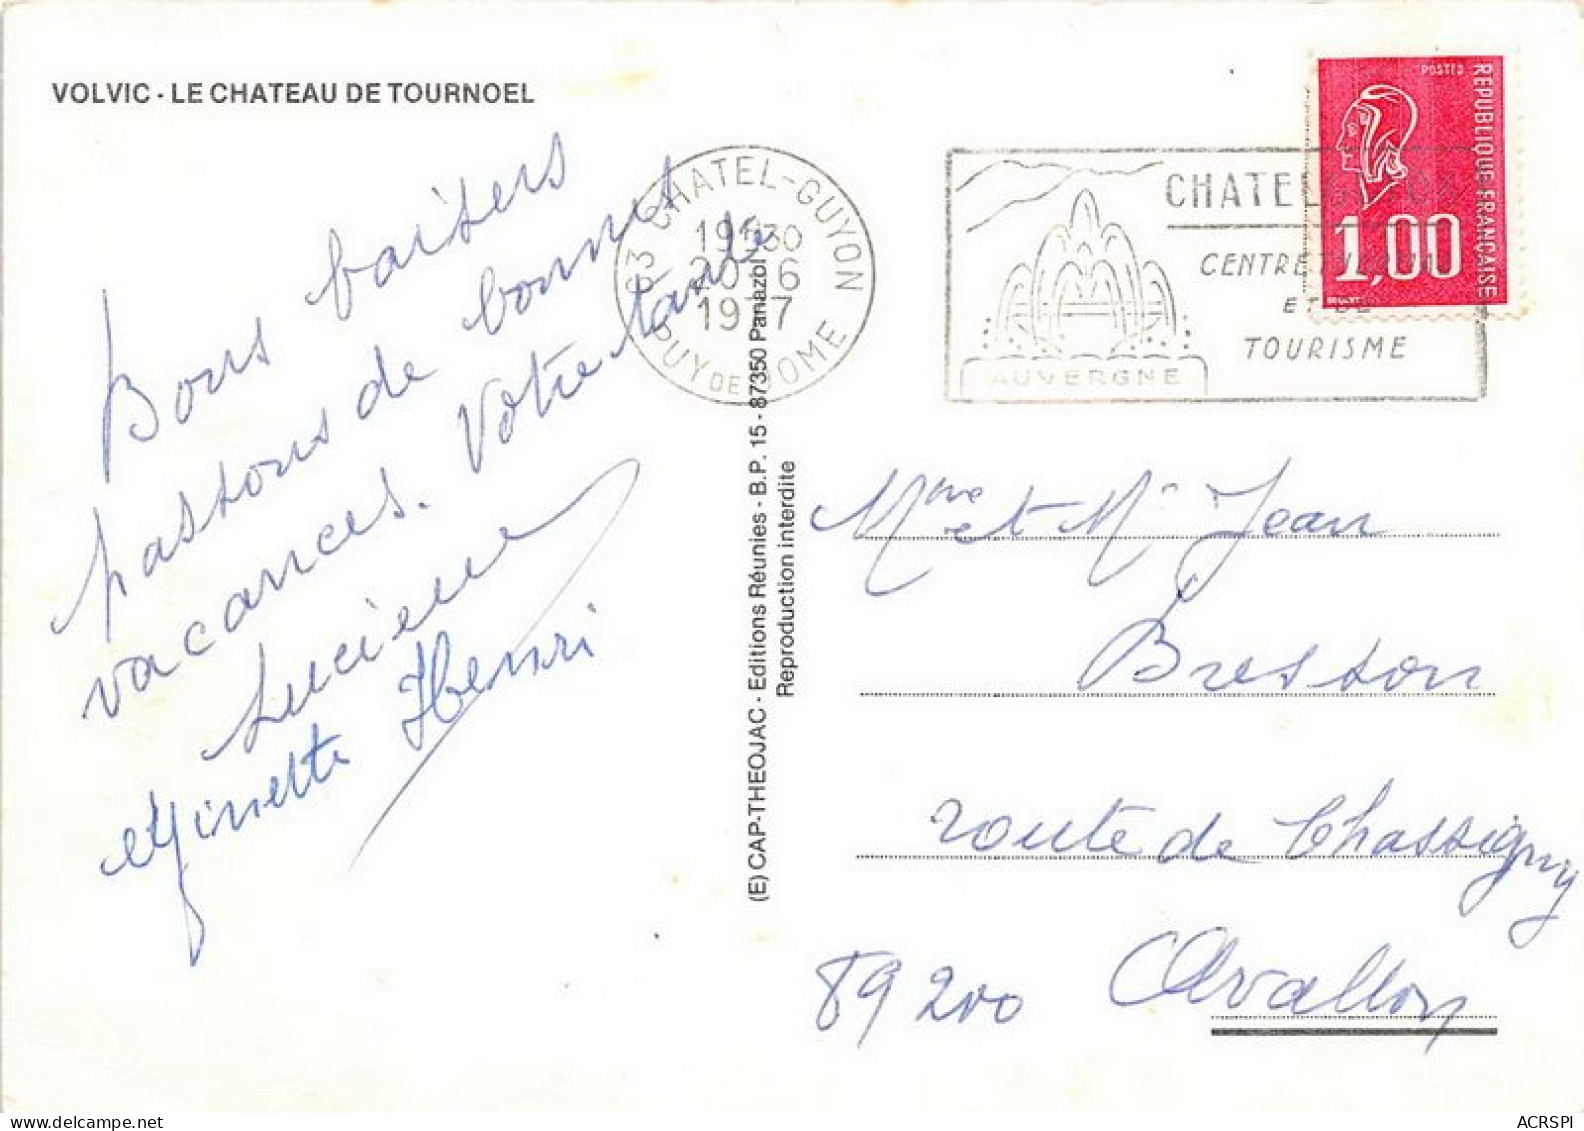 VOLVIC - LE CHATEAU DE TOURNOEL
Bons baisers
passons de bonnes
vacances. Votre tante
Lucienne
et Ginette Henri
63 CHATEL-GUYON
20-6
PUY DE DOME
CHATELGUYON
CENTRE
ET DE
TOURISME
AUVERGNE
POSTES
REPUBLIQUE FRANÇAISE
1,00
(E) CAP-THEOJAC - Editions Réunies - B.P. 15 - 87350 Panazol
Reproduction interdite
Mme et Mr Jean
Bresson
route de Chassigny
89200 Avallon
ACRSPI